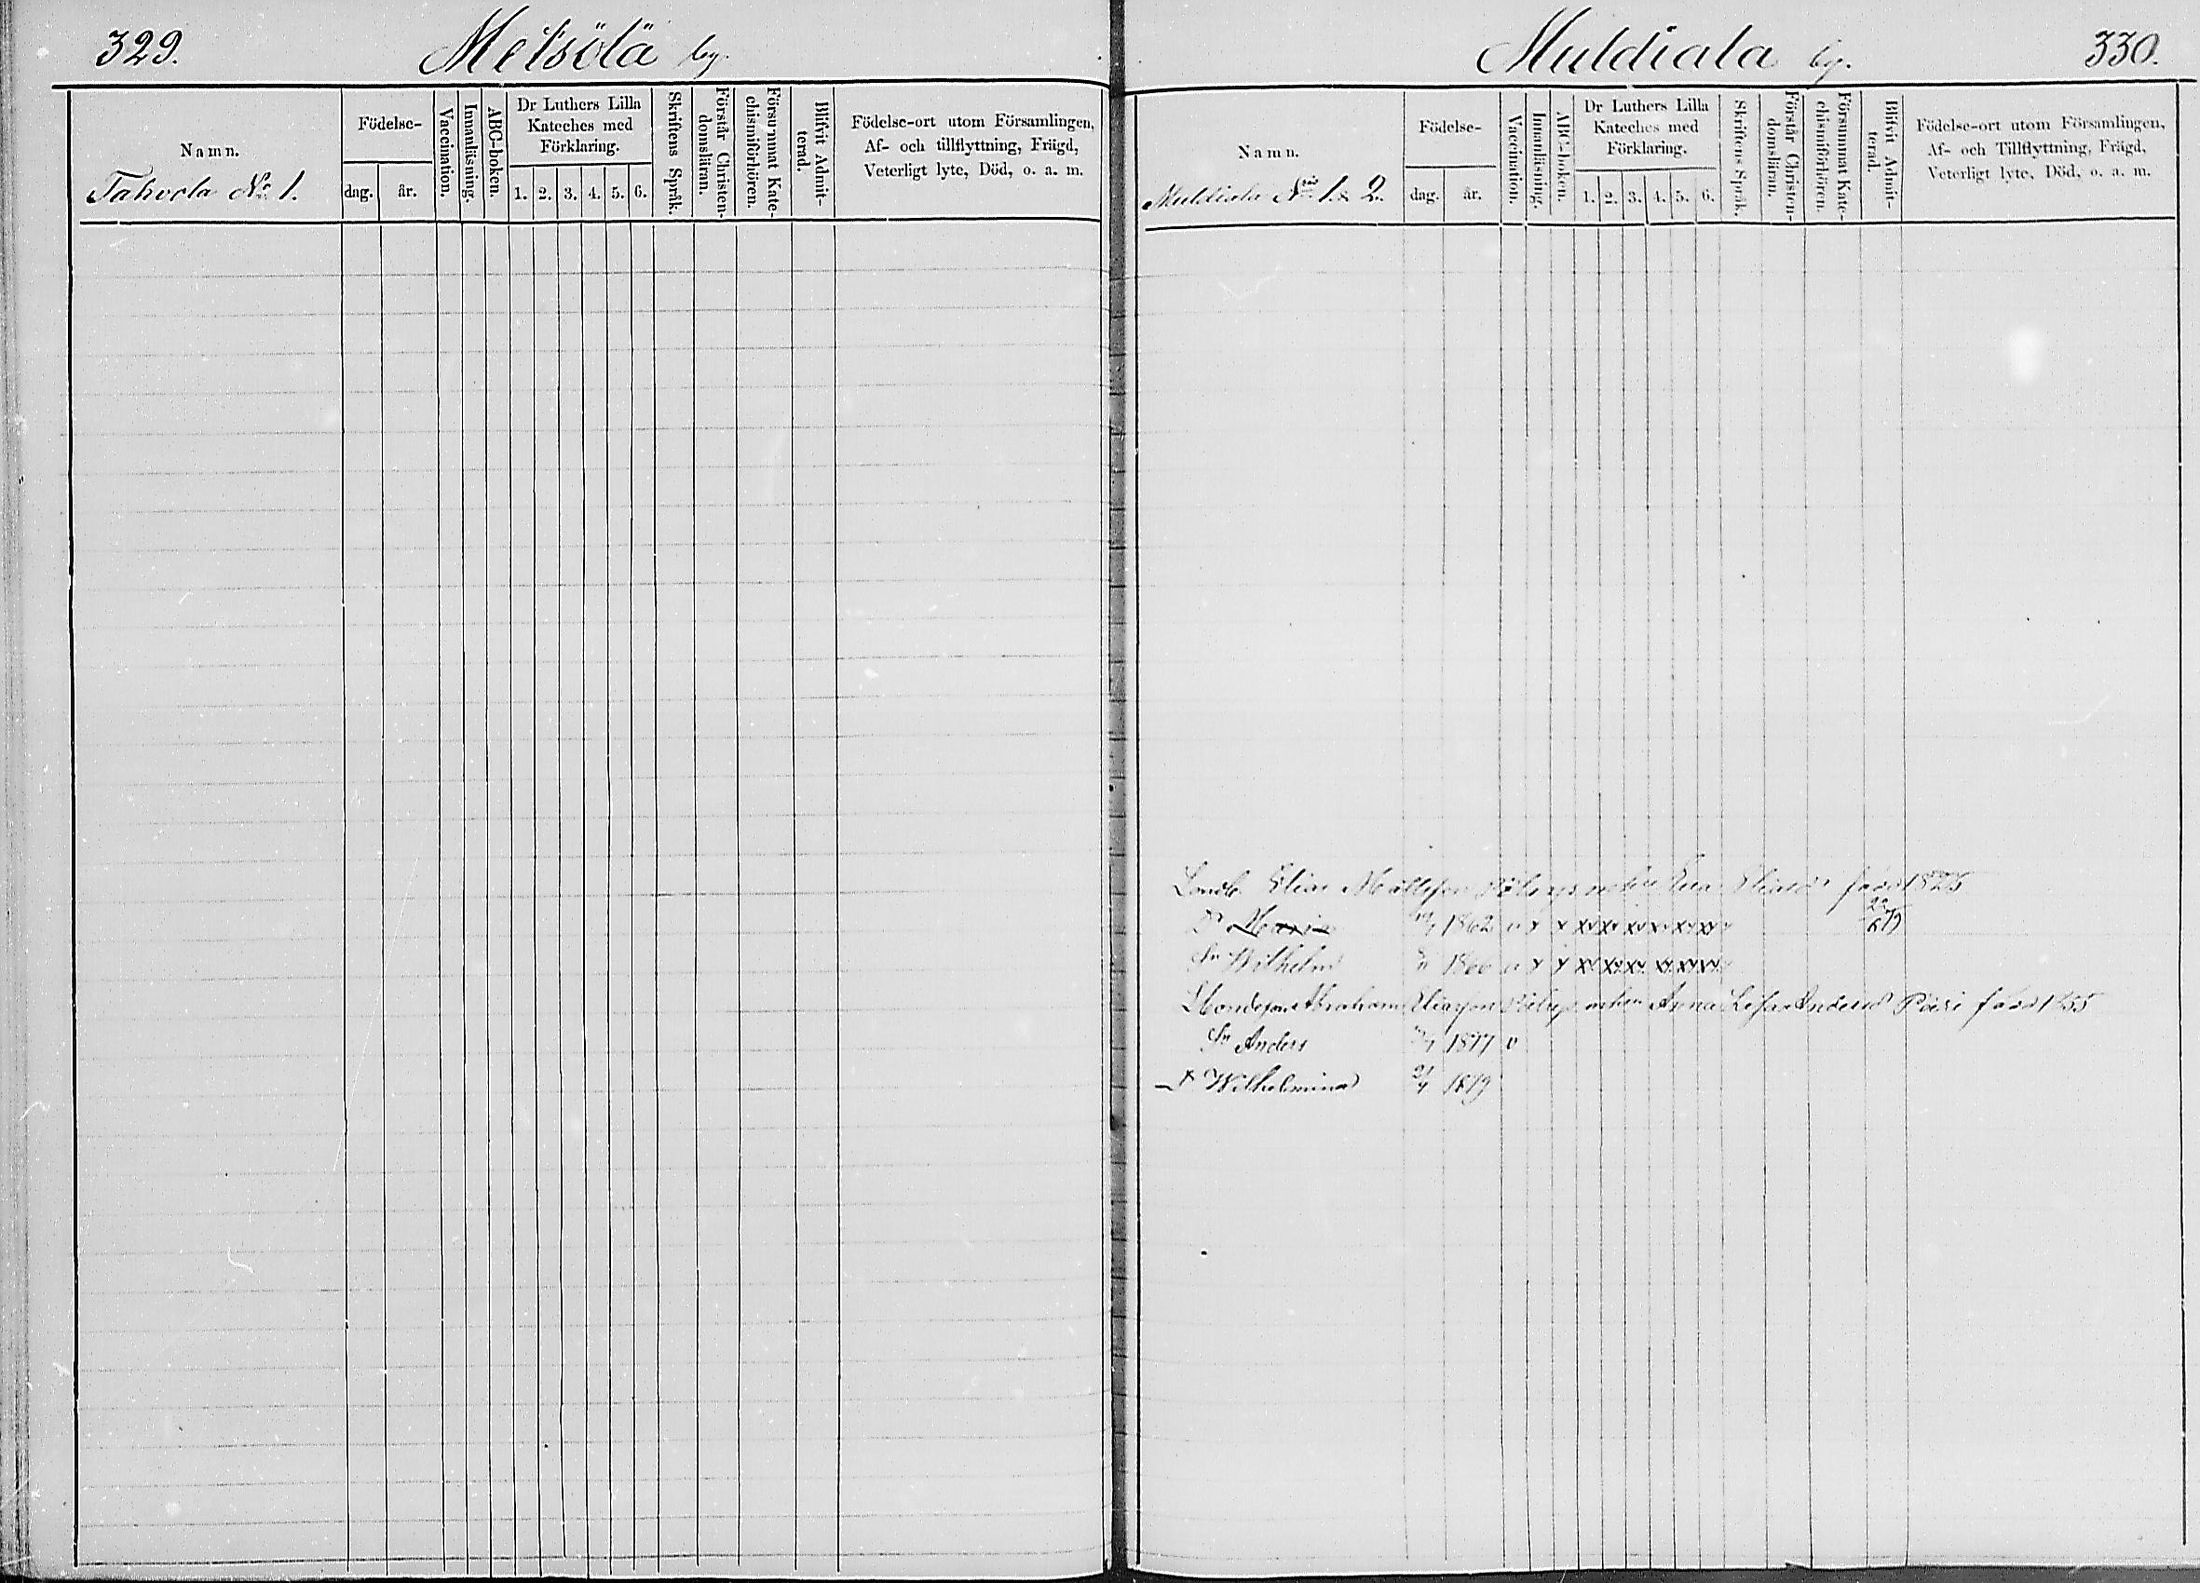 329.
Metsölä by.
Namn.
Tahvola No 1.
Födelse-
dag. år.
Vaccination.
Innanläsning.
ABC-boken.
Dr Luthers Lilla
Kateches med
Förklaring.
1. 2. 3. 4. 5. 6.
Skriftens Språk.
Förstår Christen-
domsläran.
Försummat Kate-
chismiförhören.
Blifvit Admit-
terad.
Födelse-ort utom Församlingen,
Af- och tillflyttning, Frägd,
Veterligt lyte, Död, o. a. m.
Muldiala by.
330.
Namn.
Muldiala Nris 1 & 2.
Födelse-
dag. år.
Vaccination.
Innanläsning.
ABC-boken.
Dr Luthers Lilla
Kateches med
Förklaring.
1. 2. 3. 4. 5. 6.
Skriftens Språk.
Förstår Christen-
domsläran.
Försummat Kate-
chismiförhören.
Blifvit Admit-
terad.
Födelse-ort utom Församlingen,
Af- och Tillflyttning, Frägd,
Veterligt lyte, Död, o. a. m.
Elias Mattsson Eva 1825
Dr Maria 1862 v x x xx xx xx xx xx xx
Sn Wilhelm 1866 v x x xx xx xx xx xx xx
Abraham Eliasson Anna Lisa 1855
Sn Anders 1877 v
Wilhelmina 21/4 1879